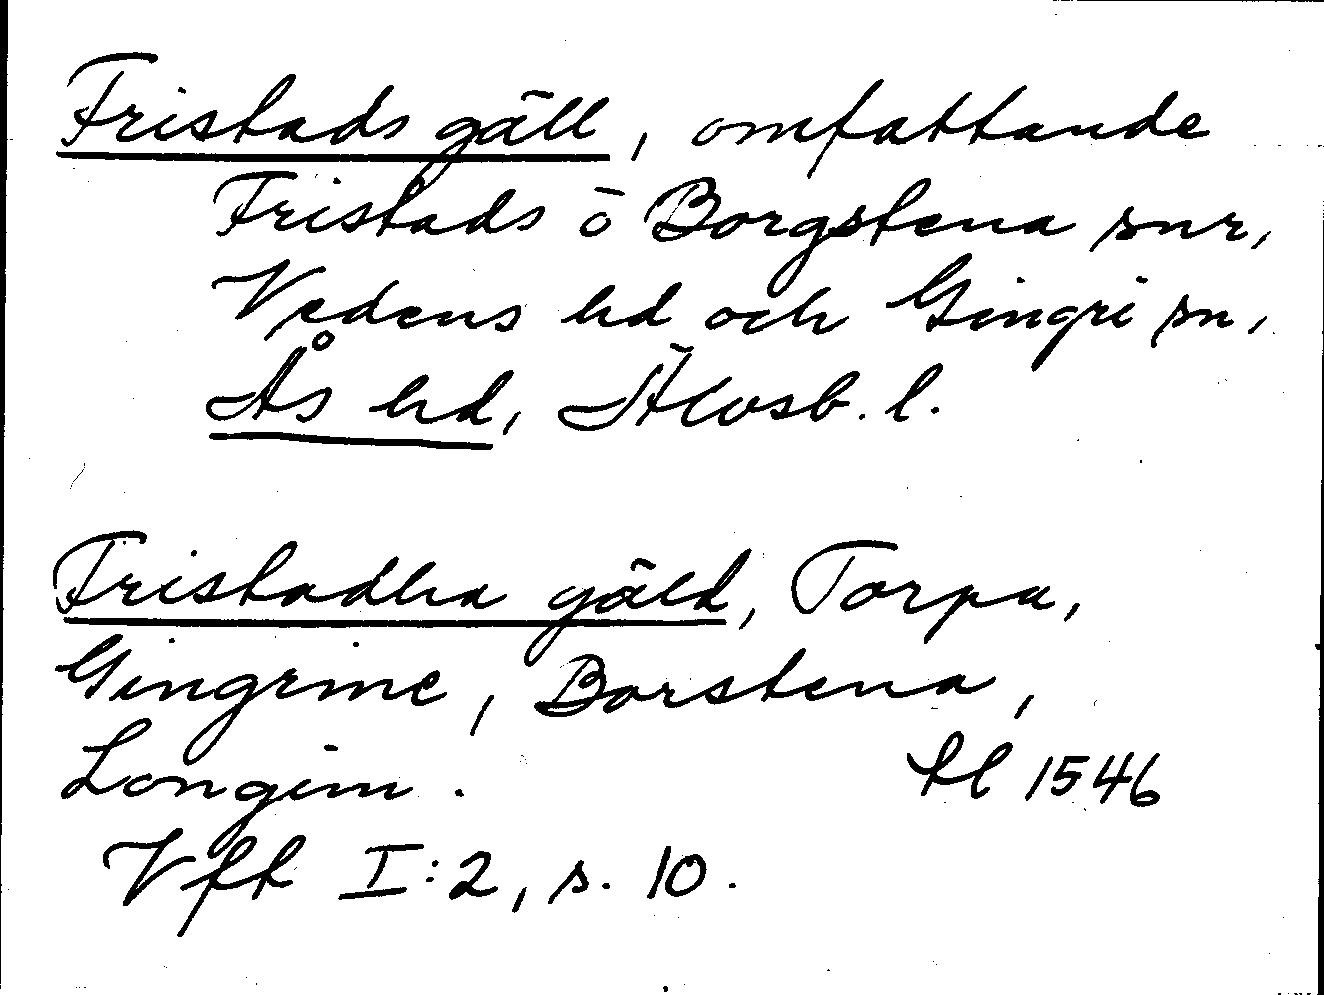 Fristads gäll, omfattande
Fristads o Borgstena snr,
Vedens hd och Gingri sn,
Ås hd, Älvsb. l.
Fristadha gäld, Torpa,
Gingrine, Borstena,
Longim.
fl 1546
Vft I:2, s. 10.